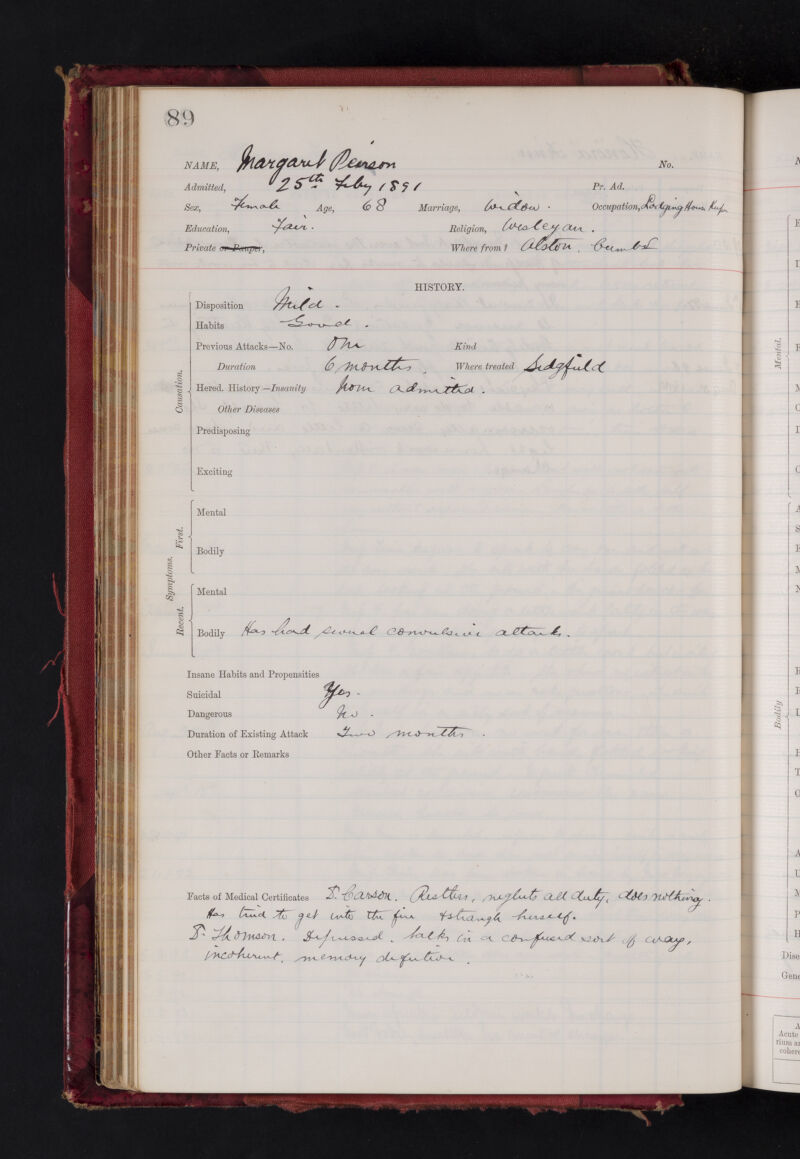 89
NAME, Margaret Pearson No.
Admitted, 25th Feby 1891 Pr. Ad.
Sex, Female Age, 68 Marriage, Widow. Occupation, Lodging House Keeper
Education, Fair. Religion, Wesleyan.
Private or Pauper, Where from? Alston, Cumbd
HISTORY.
Disposition Mild.
Habits Good.
Previous Attacks—No. One Kind
Duration 6 months. Where treated Sedgfield
Hered. History—Insanity None admitted.
Other Diseases
Predisposing
Exciting
Causation.
Mental
Bodily
First.
Symptoms.
Mental
Bodily Has had several convulsive attacks.
Recent.
Insane Habits and Propensities
Suicidal Yes.
Dangerous No.
Duration of Existing Attack Two months.
Other Facts or Remarks
Facts of Medical Certificates Dr. Carson. Restless, neglects all duty, does nothing.
Has tried to get into the fire & strangle herself.
Dr. Thomson. Depressed. talks in a confused sort of way,
incoherent. memory defective.
Mental.
Bodily
Dise
Gene
Acute
rium a
cohere